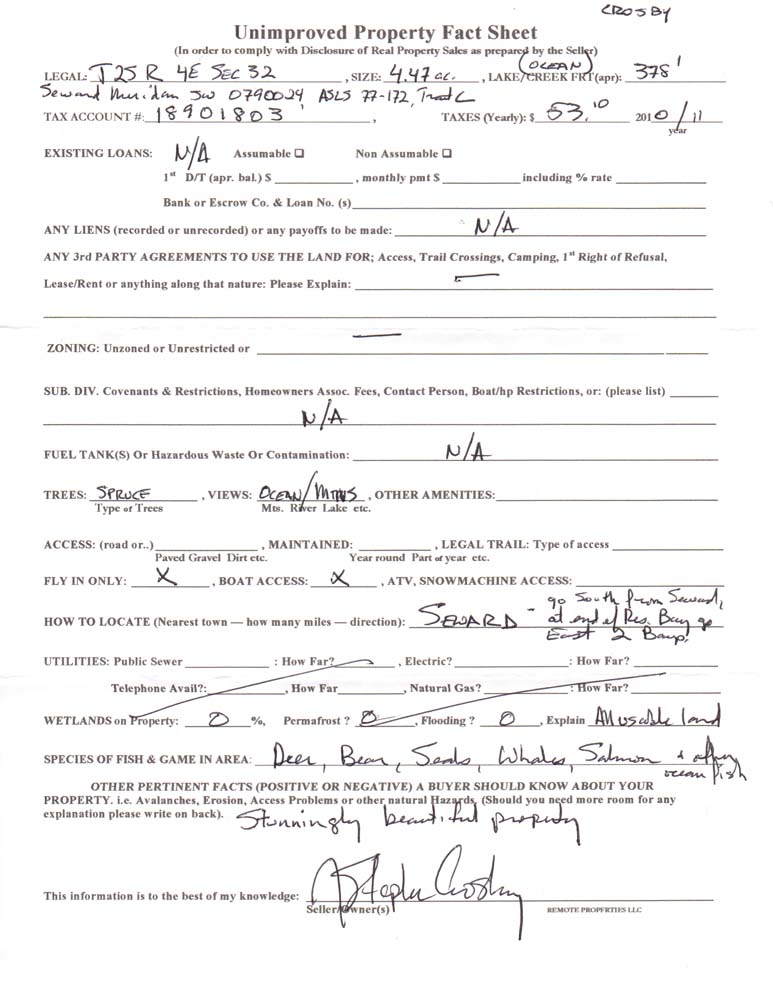 CROSBY
Unimproved Property Fact Sheet
(In order to comply with Disclosure of Real Property Sales as prepared by the Seller)
(OCEAN)
LEGAL: T 25 R 4E SEC 32, SIZE: 4.47 ac., LAKE/CREEK FRT(apr): 378'
Seward Meridan SW 0790024 ASLS 77-172, Tract C
TAX ACCOUNT #: 18901803, TAXES (Yearly): $ 53.10 2010/11
year
EXISTING LOANS: N/A Assumable ☐ Non Assumable ☐
1st D/T (apr. bal.) $ , monthly pmt $ including % rate
Bank or Escrow Co. & Loan No. (s)
ANY LIENS (recorded or unrecorded) or any payoffs to be made: N/A
ANY 3rd PARTY AGREEMENTS TO USE THE LAND FOR; Access, Trail Crossings, Camping, 1st Right of Refusal,
Lease/Rent or anything along that nature: Please Explain: —
ZONING: Unzoned or Unrestricted or —
SUB. DIV. Covenants & Restrictions, Homeowners Assoc. Fees, Contact Person, Boat/hp Restrictions, or: (please list)
N/A
FUEL TANK(S) Or Hazardous Waste Or Contamination: N/A
TREES: SPRUCE, VIEWS: OCEAN/MTNS, OTHER AMENITIES:
Type of Trees Mts. River Lake etc.
ACCESS: (road or..) , MAINTAINED: , LEGAL TRAIL: Type of access
Paved Gravel Dirt etc. Year round Part of year etc.
FLY IN ONLY: X, BOAT ACCESS: X, ATV, SNOWMACHINE ACCESS:
go South from Seward,
HOW TO LOCATE (Nearest town — how many miles — direction): SEWARD - at end of Res. Bay go
East 2 Bays!
UTILITIES: Public Sewer : How Far? , Electric? : How Far?
Telephone Avail?: , How Far , Natural Gas? : How Far?
WETLANDS on Property: 0 %, Permafrost ? 0, Flooding ? 0, Explain All useable land
SPECIES OF FISH & GAME IN AREA: Deer, Bear, Seals, Whales, Salmon & other
ocean fish
OTHER PERTINENT FACTS (POSITIVE OR NEGATIVE) A BUYER SHOULD KNOW ABOUT YOUR
PROPERTY. i.e. Avalanches, Erosion, Access Problems or other natural Hazards, (Should you need more room for any
explanation please write on back). Stunningly beautiful property
This information is to the best of my knowledge: Stephen Crosby
Seller/Owner(s) REMOTE PROPERTIES LLC